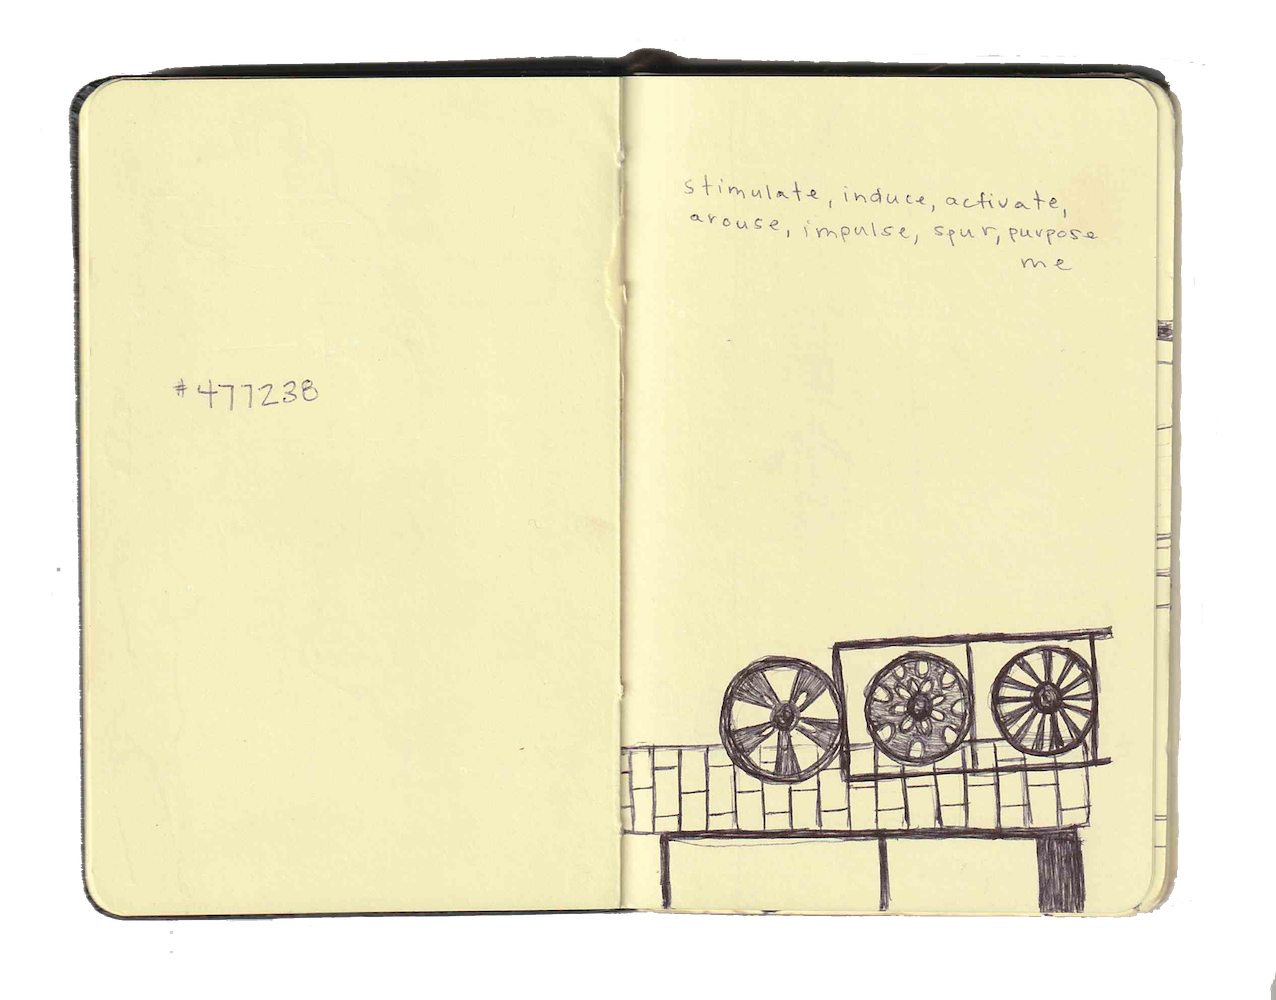 #477238
stimulate, induce, activate,
arouse, impulse, spur, purpose
me